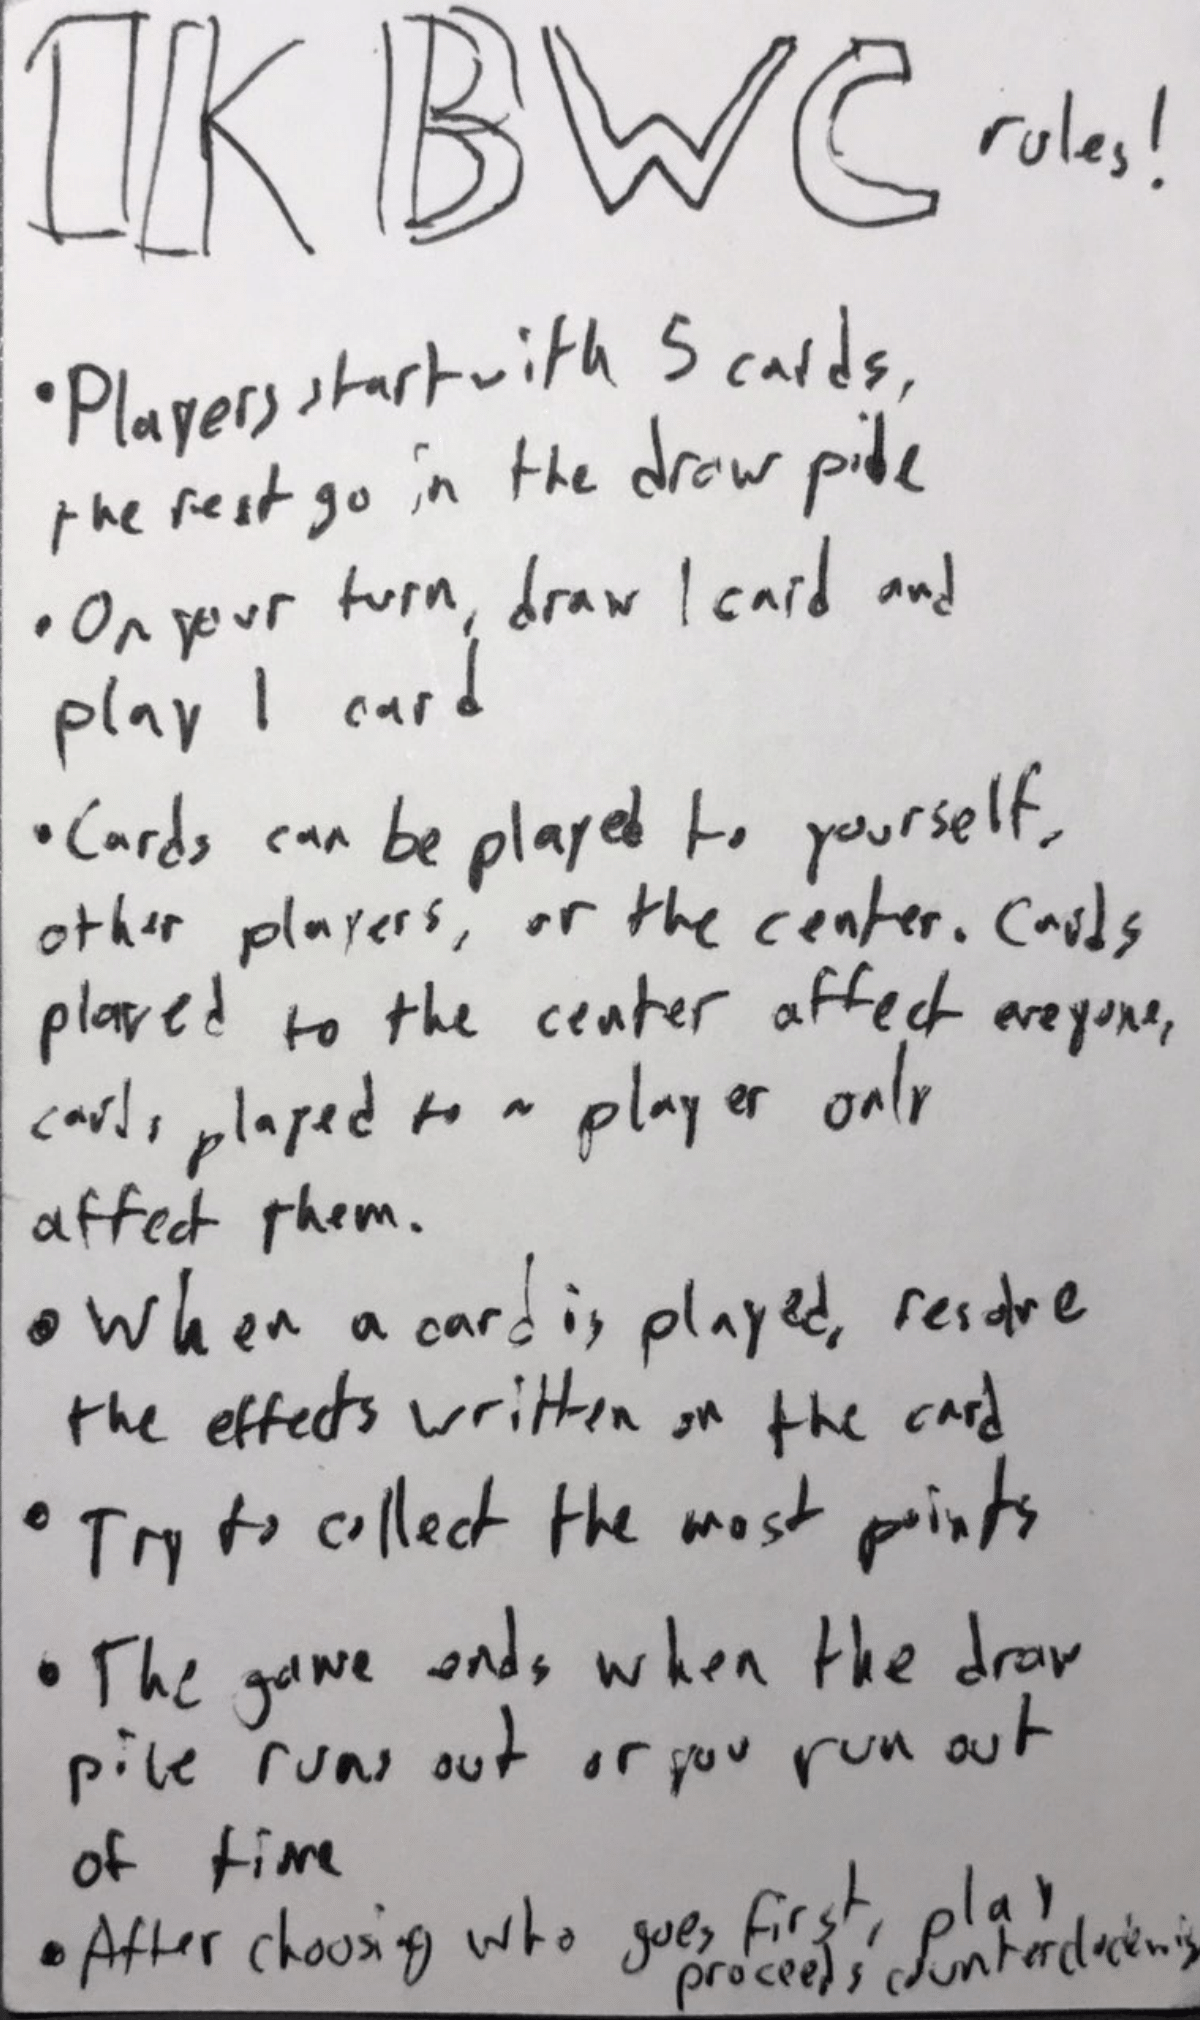 IKBWC rules!
• Players start with 5 cards,
the rest go in the draw pile
• On your turn, draw 1 card and
play 1 card
• Cards can be played to yourself,
other players, or the center. Cards
played to the center affect everyone,
cards played to a player only
affect them.
• When a card is played, resolve
the effects written on the card
• Try to collect the most points
• The game ends when the draw
pile runs out or you run out
of time
• After choosing who goes first, play
proceeds counterclockwis